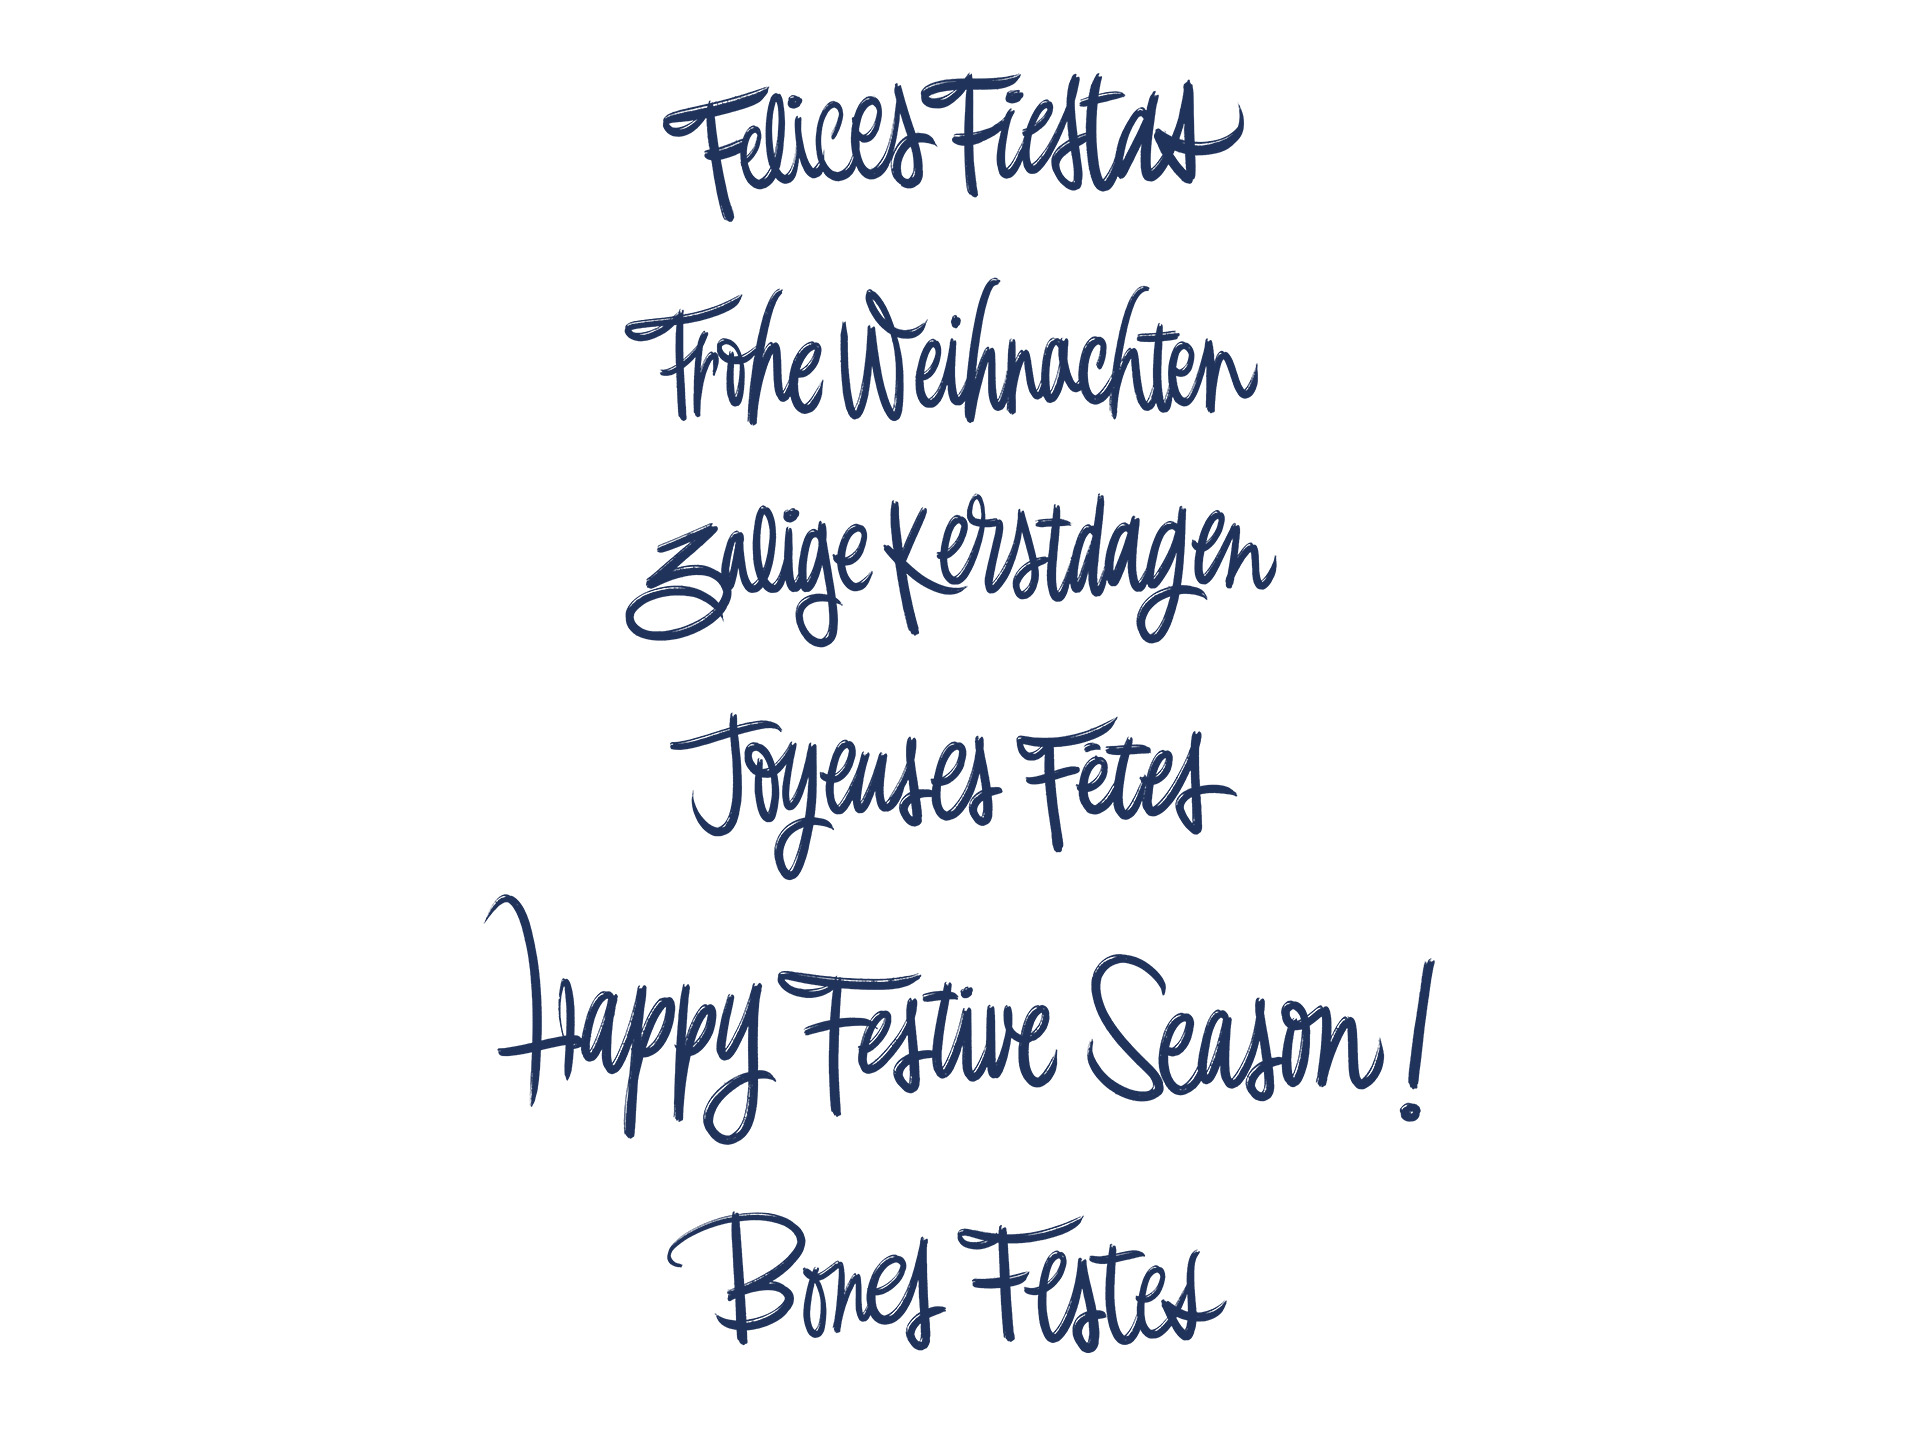 Felices Fiestas
Frohe Weihnachten
Zalige Kerstdagen
Joyeuses Fêtes
Happy Festive Season!
Bones Festes